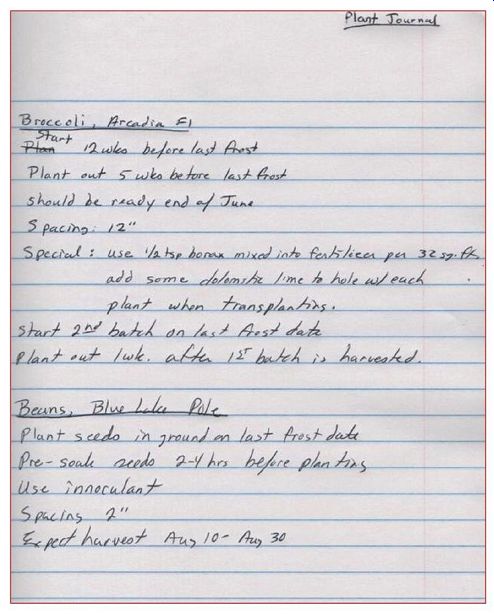 Plant Journal
Broccoli, Arcadia F1
Start
Plan 12 wks before last frost
Plant out 5 wks before last frost
should be ready end of June
Spacing: 12"
Special: use 1/2 tsp borax mixed into fertilizer per 32 sq. ft.
add some dolomitic lime to hole w/ each
plant when transplanting.
Start 2nd batch on last frost date
Plant out 1 wk. after 1st batch is harvested.
Beans, Blue Lake Pole
Plant seeds in ground on last frost date
Pre-soak seeds 2-4 hrs before planting
Use innoculant
Spacing 2"
Expect harvest Aug 10 - Aug 30